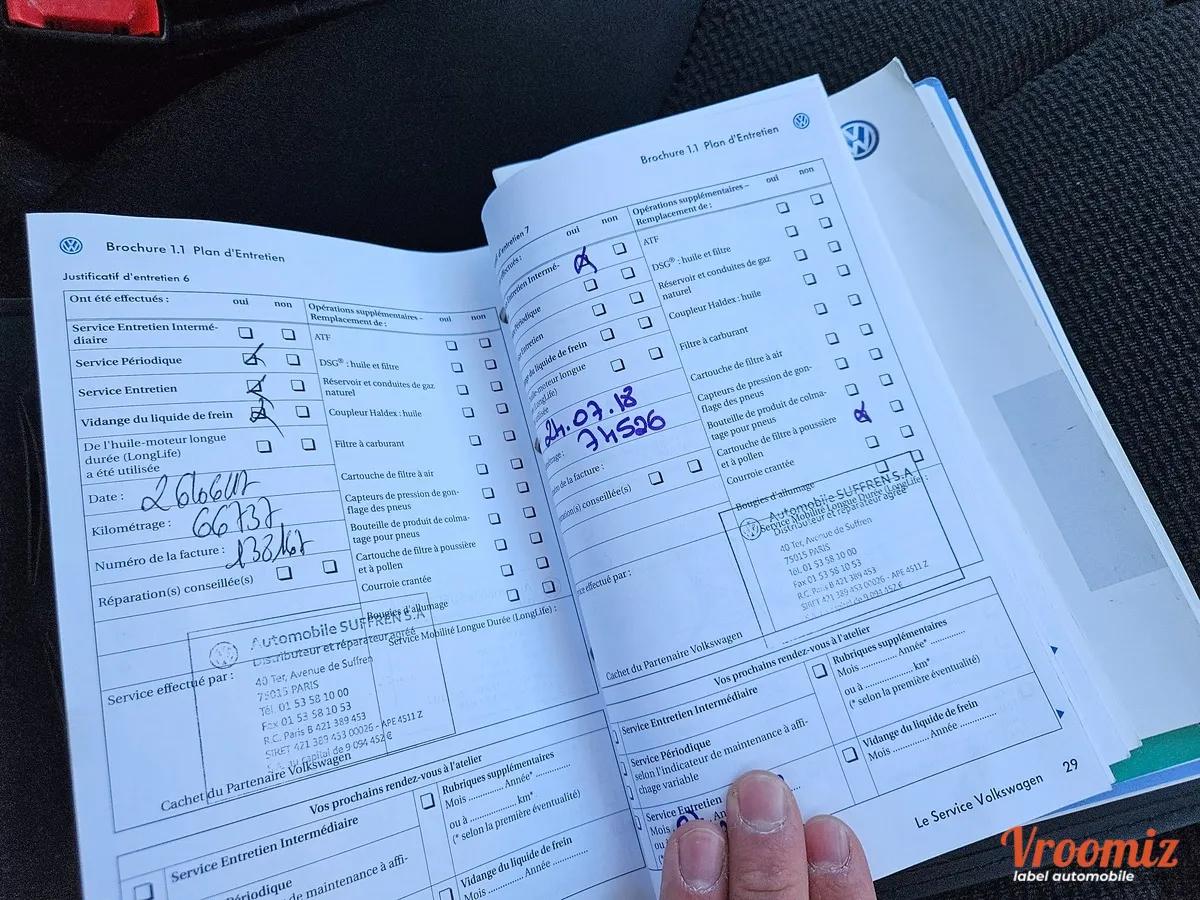 Brochure 1.1 Plan d'Entretien
Justificatif d'entretien 6
Ont été effectués : oui non
Service Entretien Intermé-
diaire
Service Périodique
Service Entretien
Vidange du liquide de frein
De l'huile-moteur longue
durée (LongLife)
a été utilisée
Date :
Kilométrage : 66737
Numéro de la facture : 138167
Réparation(s) conseillée(s)
Opérations supplémentaires – oui non
Remplacement de :
ATF
DSG® : huile et filtre
Réservoir et conduites de gaz
naturel
Coupleur Haldex : huile
Filtre à carburant
Cartouche de filtre à air
Capteurs de pression de gon-
flage des pneus
Bouteille de produit de colma-
tage pour pneus
Cartouche de filtre à poussière
et à pollen
Courroie crantée
Bougies d'allumage
Service Mobilité Longue Durée (LongLife) :
Service effectué par :
Automobile SUFFREN S.A
Distributeur et réparateur agréé
40 Ter, Avenue de Suffren
75015 PARIS
Tél. 01 53 58 10 00
Fax 01 53 58 10 53
R.C. Paris B 421 389 453
SIRET 421 389 453 00026 - APE 4511 Z
S.A. au capital de 9 094 452 €
Cachet du Partenaire Volkswagen
Vos prochains rendez-vous à l'atelier
Service Entretien Intermédiaire
Périodique
de maintenance à affi-
Rubriques supplémentaires
Mois ............ Année* ............
ou à ............ km*
(* selon la première éventualité)
Vidange du liquide de frein
Mois ............ Année ............
Brochure 1.1 Plan d'Entretien
d'entretien 7
effectués : oui non
Entretien Intermé-
Périodique
Entretien
du liquide de frein
huile-moteur longue
(LongLife)
utilisée
24.07.18
74526
de la facture :
conseillée(s)
Opérations supplémentaires – oui non
Remplacement de :
ATF
DSG® : huile et filtre
Réservoir et conduites de gaz
naturel
Coupleur Haldex : huile
Filtre à carburant
Cartouche de filtre à air
Capteurs de pression de gon-
flage des pneus
Bouteille de produit de colma-
tage pour pneus
Cartouche de filtre à poussière
et à pollen
Courroie crantée
Bougies d'allumage
Service Mobilité Longue Durée (LongLife) :
effectué par :
Automobile SUFFREN S.A
Distributeur et réparateur agréé
40 Ter, Avenue de Suffren
75015 PARIS
Tél. 01 53 58 10 00
Fax 01 53 58 10 53
R.C. Paris B 421 389 453
SIRET 421 389 453 00026 - APE 4511 Z
capital de 9 094 452 €
Cachet du Partenaire Volkswagen
Vos prochains rendez-vous à l'atelier
Service Entretien Intermédiaire
Service Périodique
selon l'indicateur de maintenance à affi-
chage variable
Service Entretien
Mois
ou
Rubriques supplémentaires
Mois ............ Année* ............
ou à ............ km*
(* selon la première éventualité)
Vidange du liquide de frein
Mois ............ Année ............
Le Service Volkswagen 29
Vroomiz
label automobile